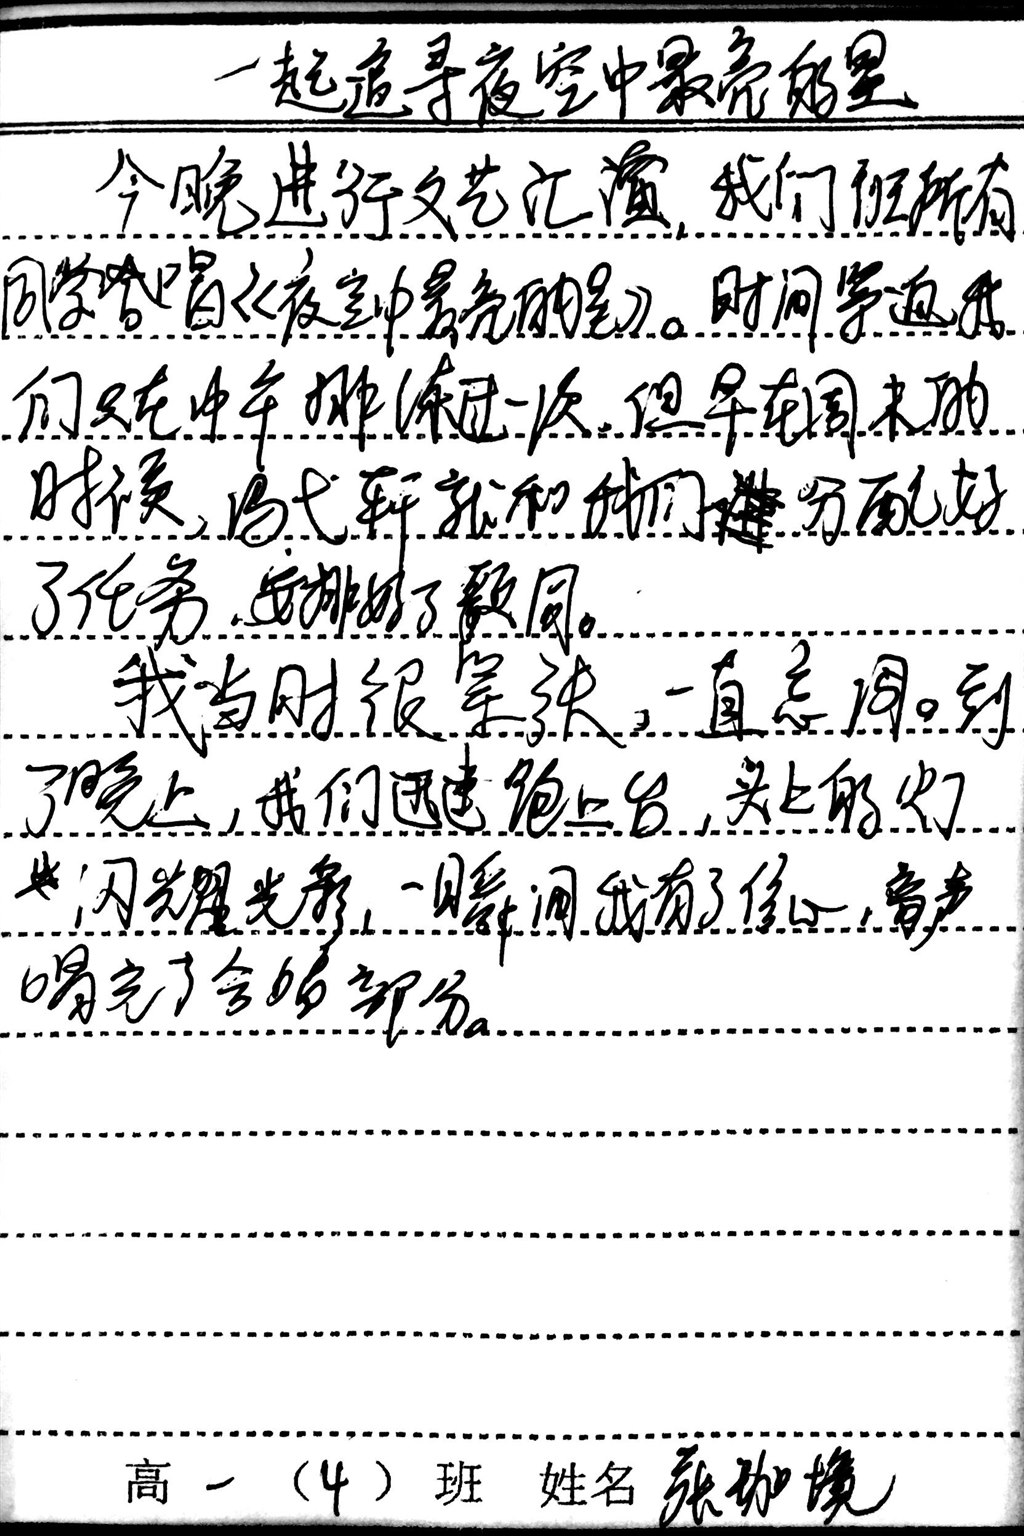 一起追寻夜空中最亮的星
今晚进行文艺汇演,我们班所有
同学皆唱《夜空中最亮的星》。时间窘迫我
们只在中午排练过一次,但早在周末的
时候,冯弋轩就和我们分配好
了任务,安排好了歌词。
我当时很紧张,一直忘词。到
了晚上,我们迅速跑上台,头上的灯
闪耀光彩,一瞬间我有了信心,高声
唱完了合唱部分。
高一(4)班 姓名 张珈境